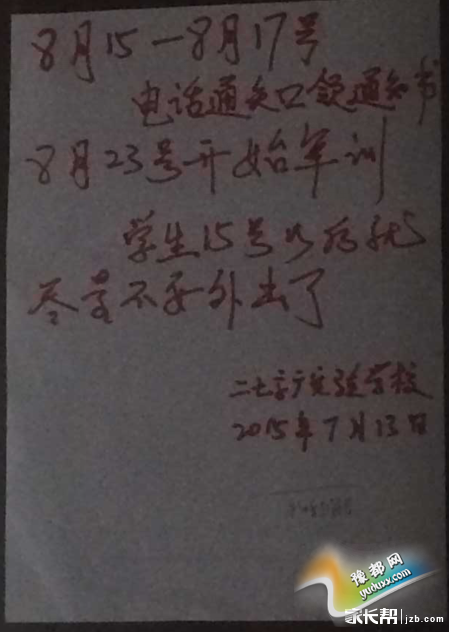 8月15—8月17号
电话通知领通知书
8月23号开始军训
学生15号以后就
尽量不要外出了
二七实验学校
2015年7月13日
豫都网
yuduxx.com
家长帮 jzb.com